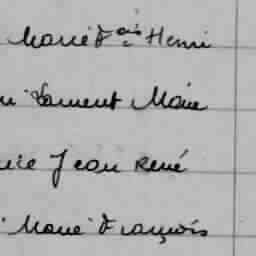 Marie Fçois Henri
Laurent Marie
Jean René
Marie François